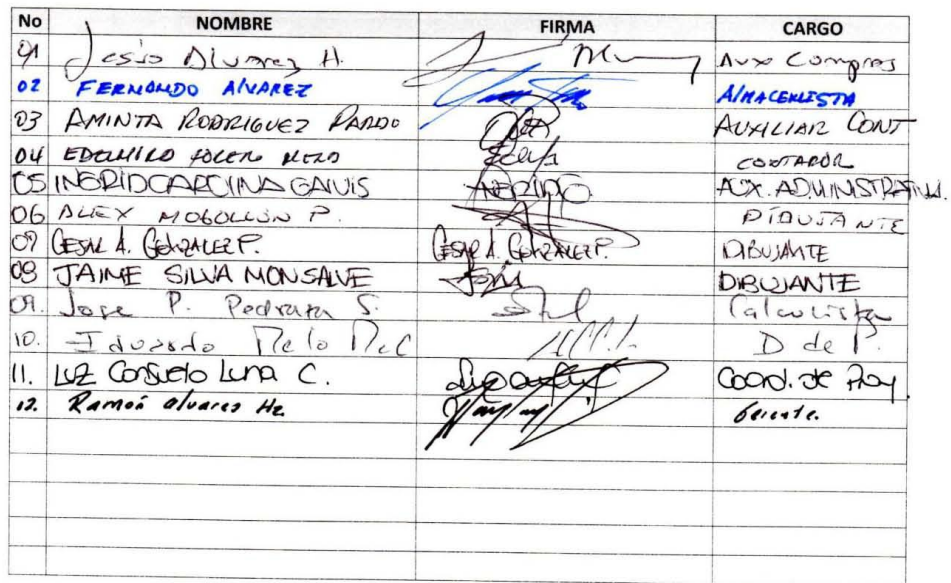 No NOMBRE FIRMA CARGO
01 Jesús Alvarez H. Aux Compras
02 FERNANDO ALVAREZ ALMACENISTA
03 AMINTA RODRIGUEZ PARDO AUXILIAR CONT
04 EDELMIRO CONTADOR
05 INGRID CAROLINA GALVIS INGRID AUX. ADMINISTRATIVA.
06 ALEX MOGOLLON P. DIBUJANTE
07 CESAR A. GONZALEZ P. CESAR A. GONZALEZ P. DIBUJANTE
08 JAIME SILVA MONSALVE DIBUJANTE
09. Jose P. Pedraza S. Calculista
10. Eduardo Melo D de P.
11. LUZ Consuelo Luna C. Coord. de Proy
12. Ramón Alvarez Hz. Gerente.